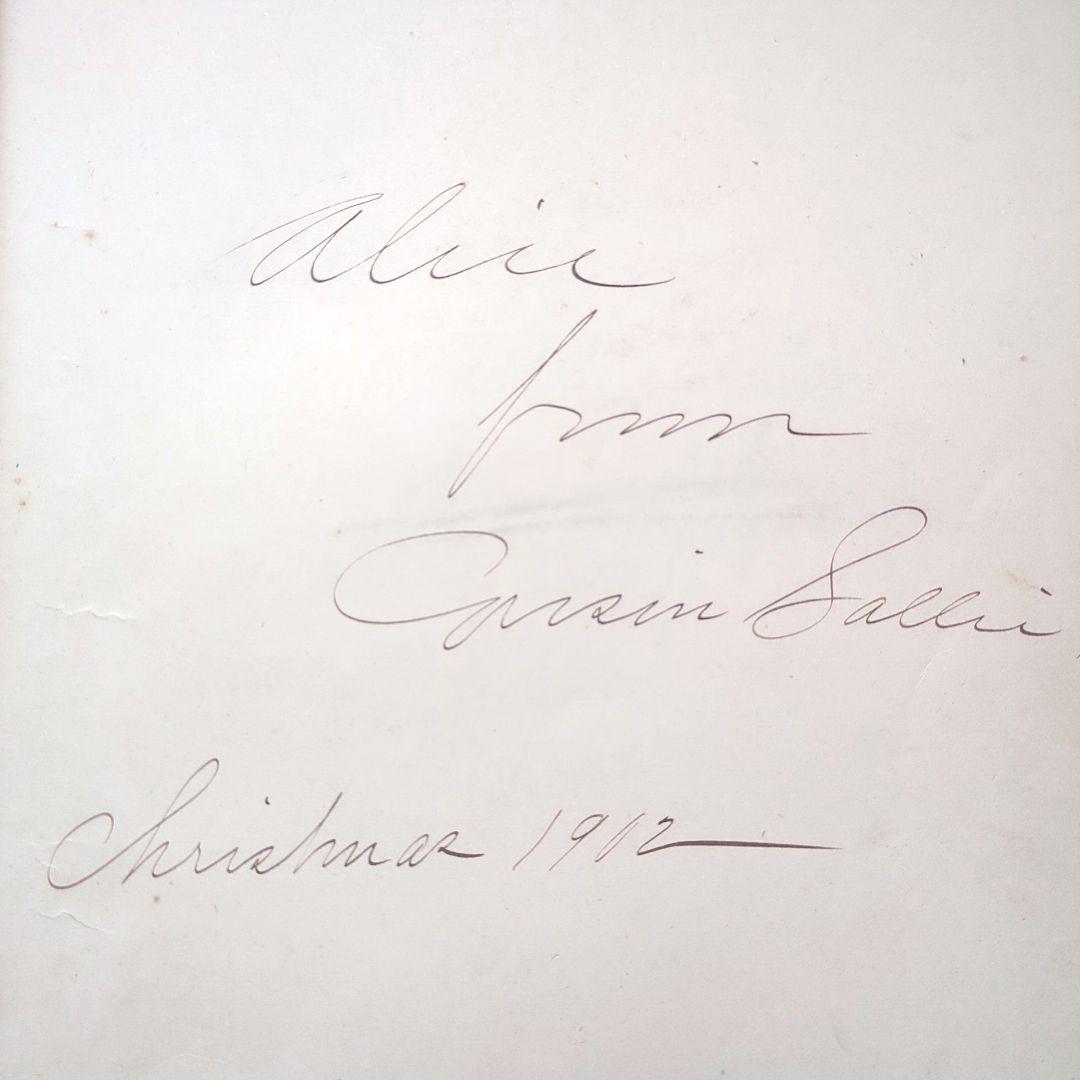 Alice
from
Cousin Sallie
Christmas 1912